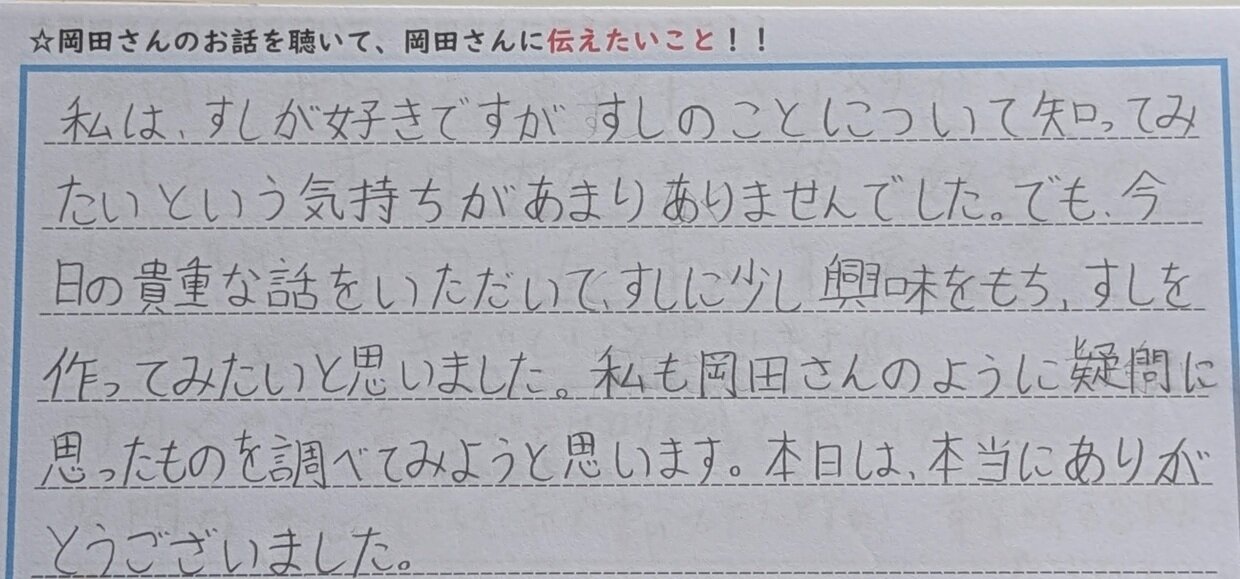 ☆岡田さんのお話を聴いて、岡田さんに伝えたいこと！！
私は、すしが好きですが すしのことについて知ってみ
たいという気持ちがあまりありませんでした。でも、今
日の貴重な話をいただいて、すしに少し興味をもち、すしを
作ってみたいと思いました。私も岡田さんのように疑問に
思ったものを調べてみようと思います。本日は、本当にありが
とうございました。